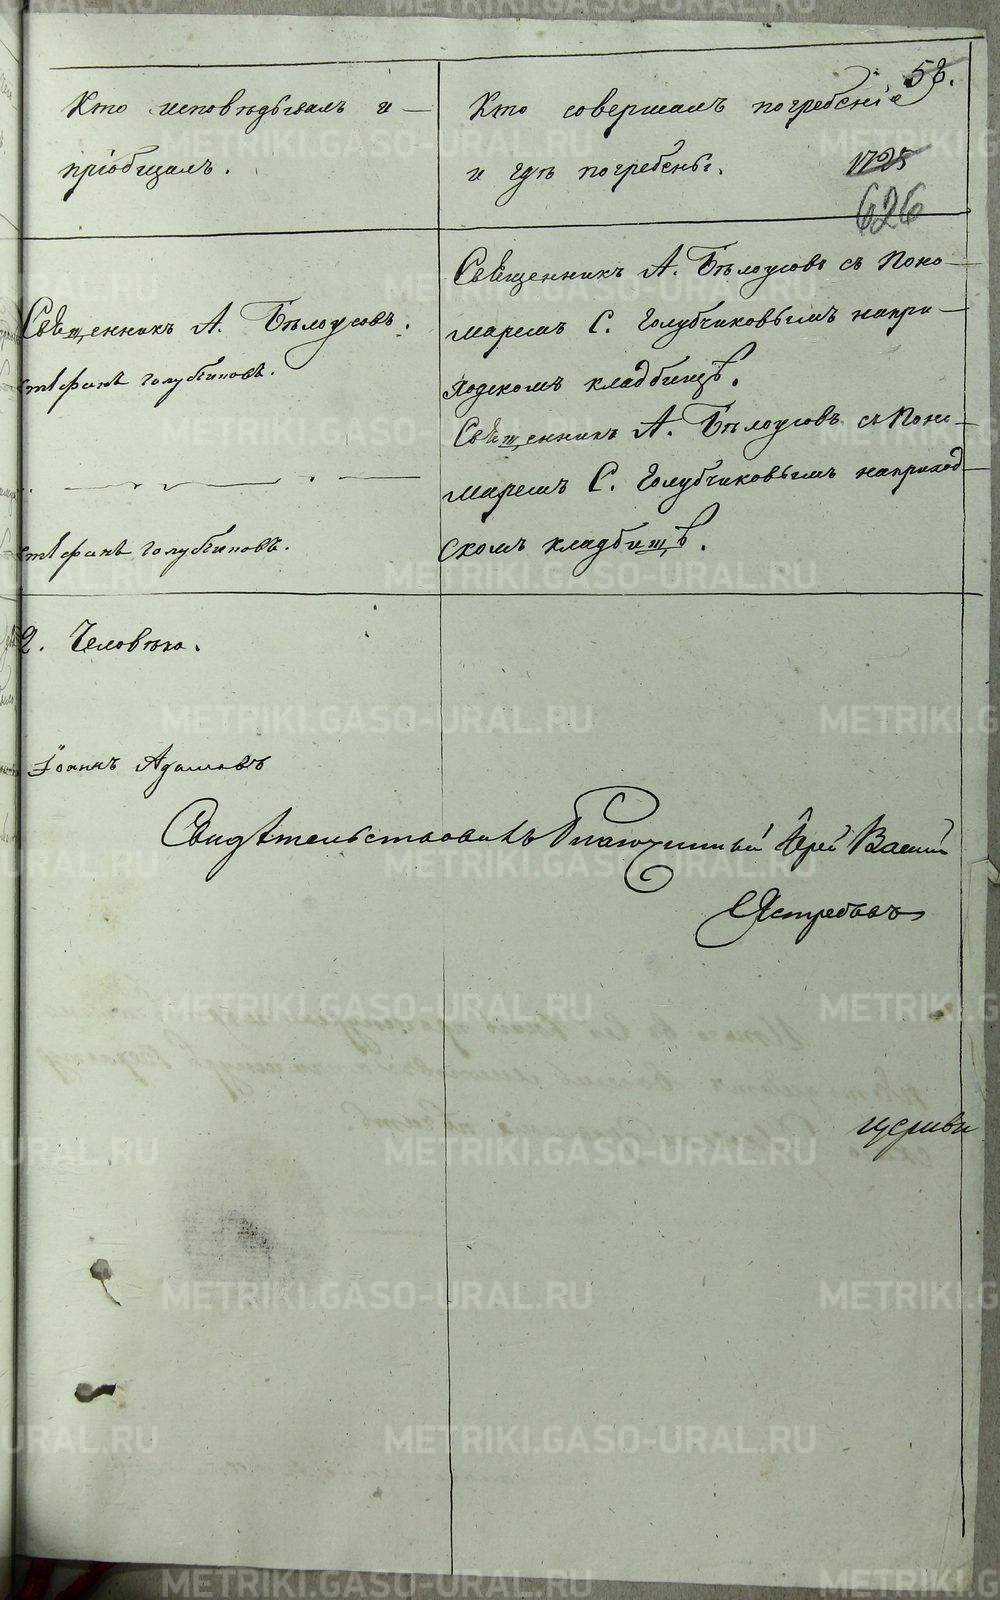 58.
Кто исповѣдывалъ и
пріобщалъ.
Кто совершалъ погребеніе
и гдѣ погребены.
1725
626
Священникъ А. Бѣлоусовъ.
Стефанъ Голубчиковъ.
Стефанъ Голубчиковъ.
Священникъ А. Бѣлоусовъ съ Поно-
маремъ С. Голубчиковымъ напри-
ходскомъ кладбищѣ.
Священникъ А. Бѣлоусовъ съ Поно-
маремъ С. Голубчиковымъ наприход-
скомъ кладбищѣ.
2. Человѣка.
Іоаннъ Адамовъ
Свидѣтельствовалъ Благочинный Іерей Василій
Ястребовъ
церкви
METRIKI.GASO-URAL.RU